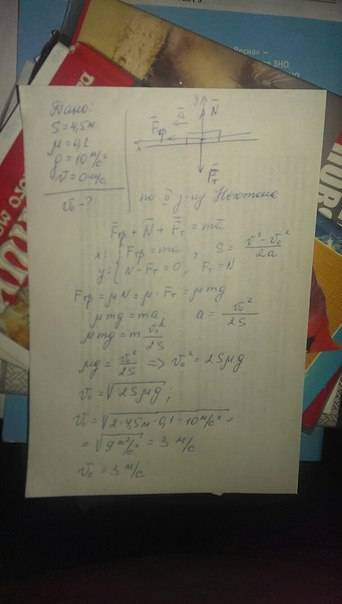 Дано:
S = 4,5м
μ = 0,1
g = 10 м/с²
v = 0 м/с
v₀ - ?
y
N
a
Fтр
x
Fт
по II з-ну Ньютона
Fтр + N + Fт = ma
x: { Fтр = ma, S = v² - v₀² / 2a
y: { N - Fт = 0, Fт = N
Fтр = μN = μ · Fт = μmg
μmg = ma, a = v₀² / 2S
μmg = m v₀² / 2S
μg = v₀² / 2S => v₀² = 2Sμg
v₀ = √2Sμg ;
v₀ = √2 · 4,5м · 0,1 · 10 м/с² =
= √9 м²/с² = 3 м/с
v₀ = 3 м/с